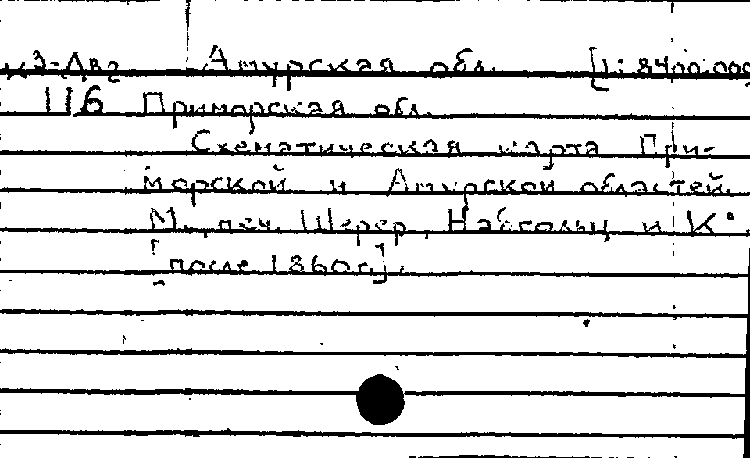 Амурская обл. [1:8400.000
116 Приморская обл.
Схематическая карта При-
морской и Амурской областей.
М., печ. Шерер, Набгольц и К°
[после 1860 г.].